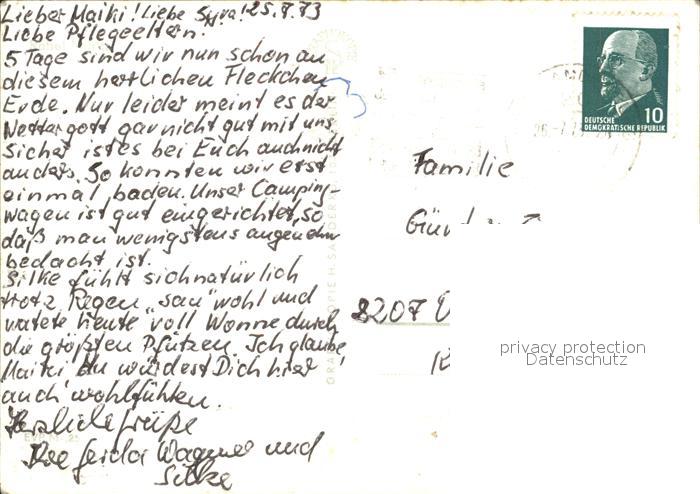 Lieber Maiki! Liebe Syra! 25.7.73
Liebe Pflegeeltern!
5 Tage sind wir nun schon an
diesem herrlichen Fleckchen
Erde. Nur leider meint es der
Wettergott gar nicht gut mit uns.
Sicher ist es bei Euch auch nicht
anders. So konnten wir erst
einmal baden. Unser Camping-
wagen ist gut eingerichtet, so
daß man wenigstens angenehm
bedacht ist.
Silke fühlt sich natürlich
trotz Regen „sau" wohl und
watete heute voll Wonne durch
die größten Pfützen. Ich glaube,
Maiki du würdest Dich hier
auch wohlfühlen.
Herzliche Grüße
Gerda Wagner und
Silke
Familie
8207
DEUTSCHE
DEMOKRATISCHE REPUBLIK
10
privacy protection
Datenschutz